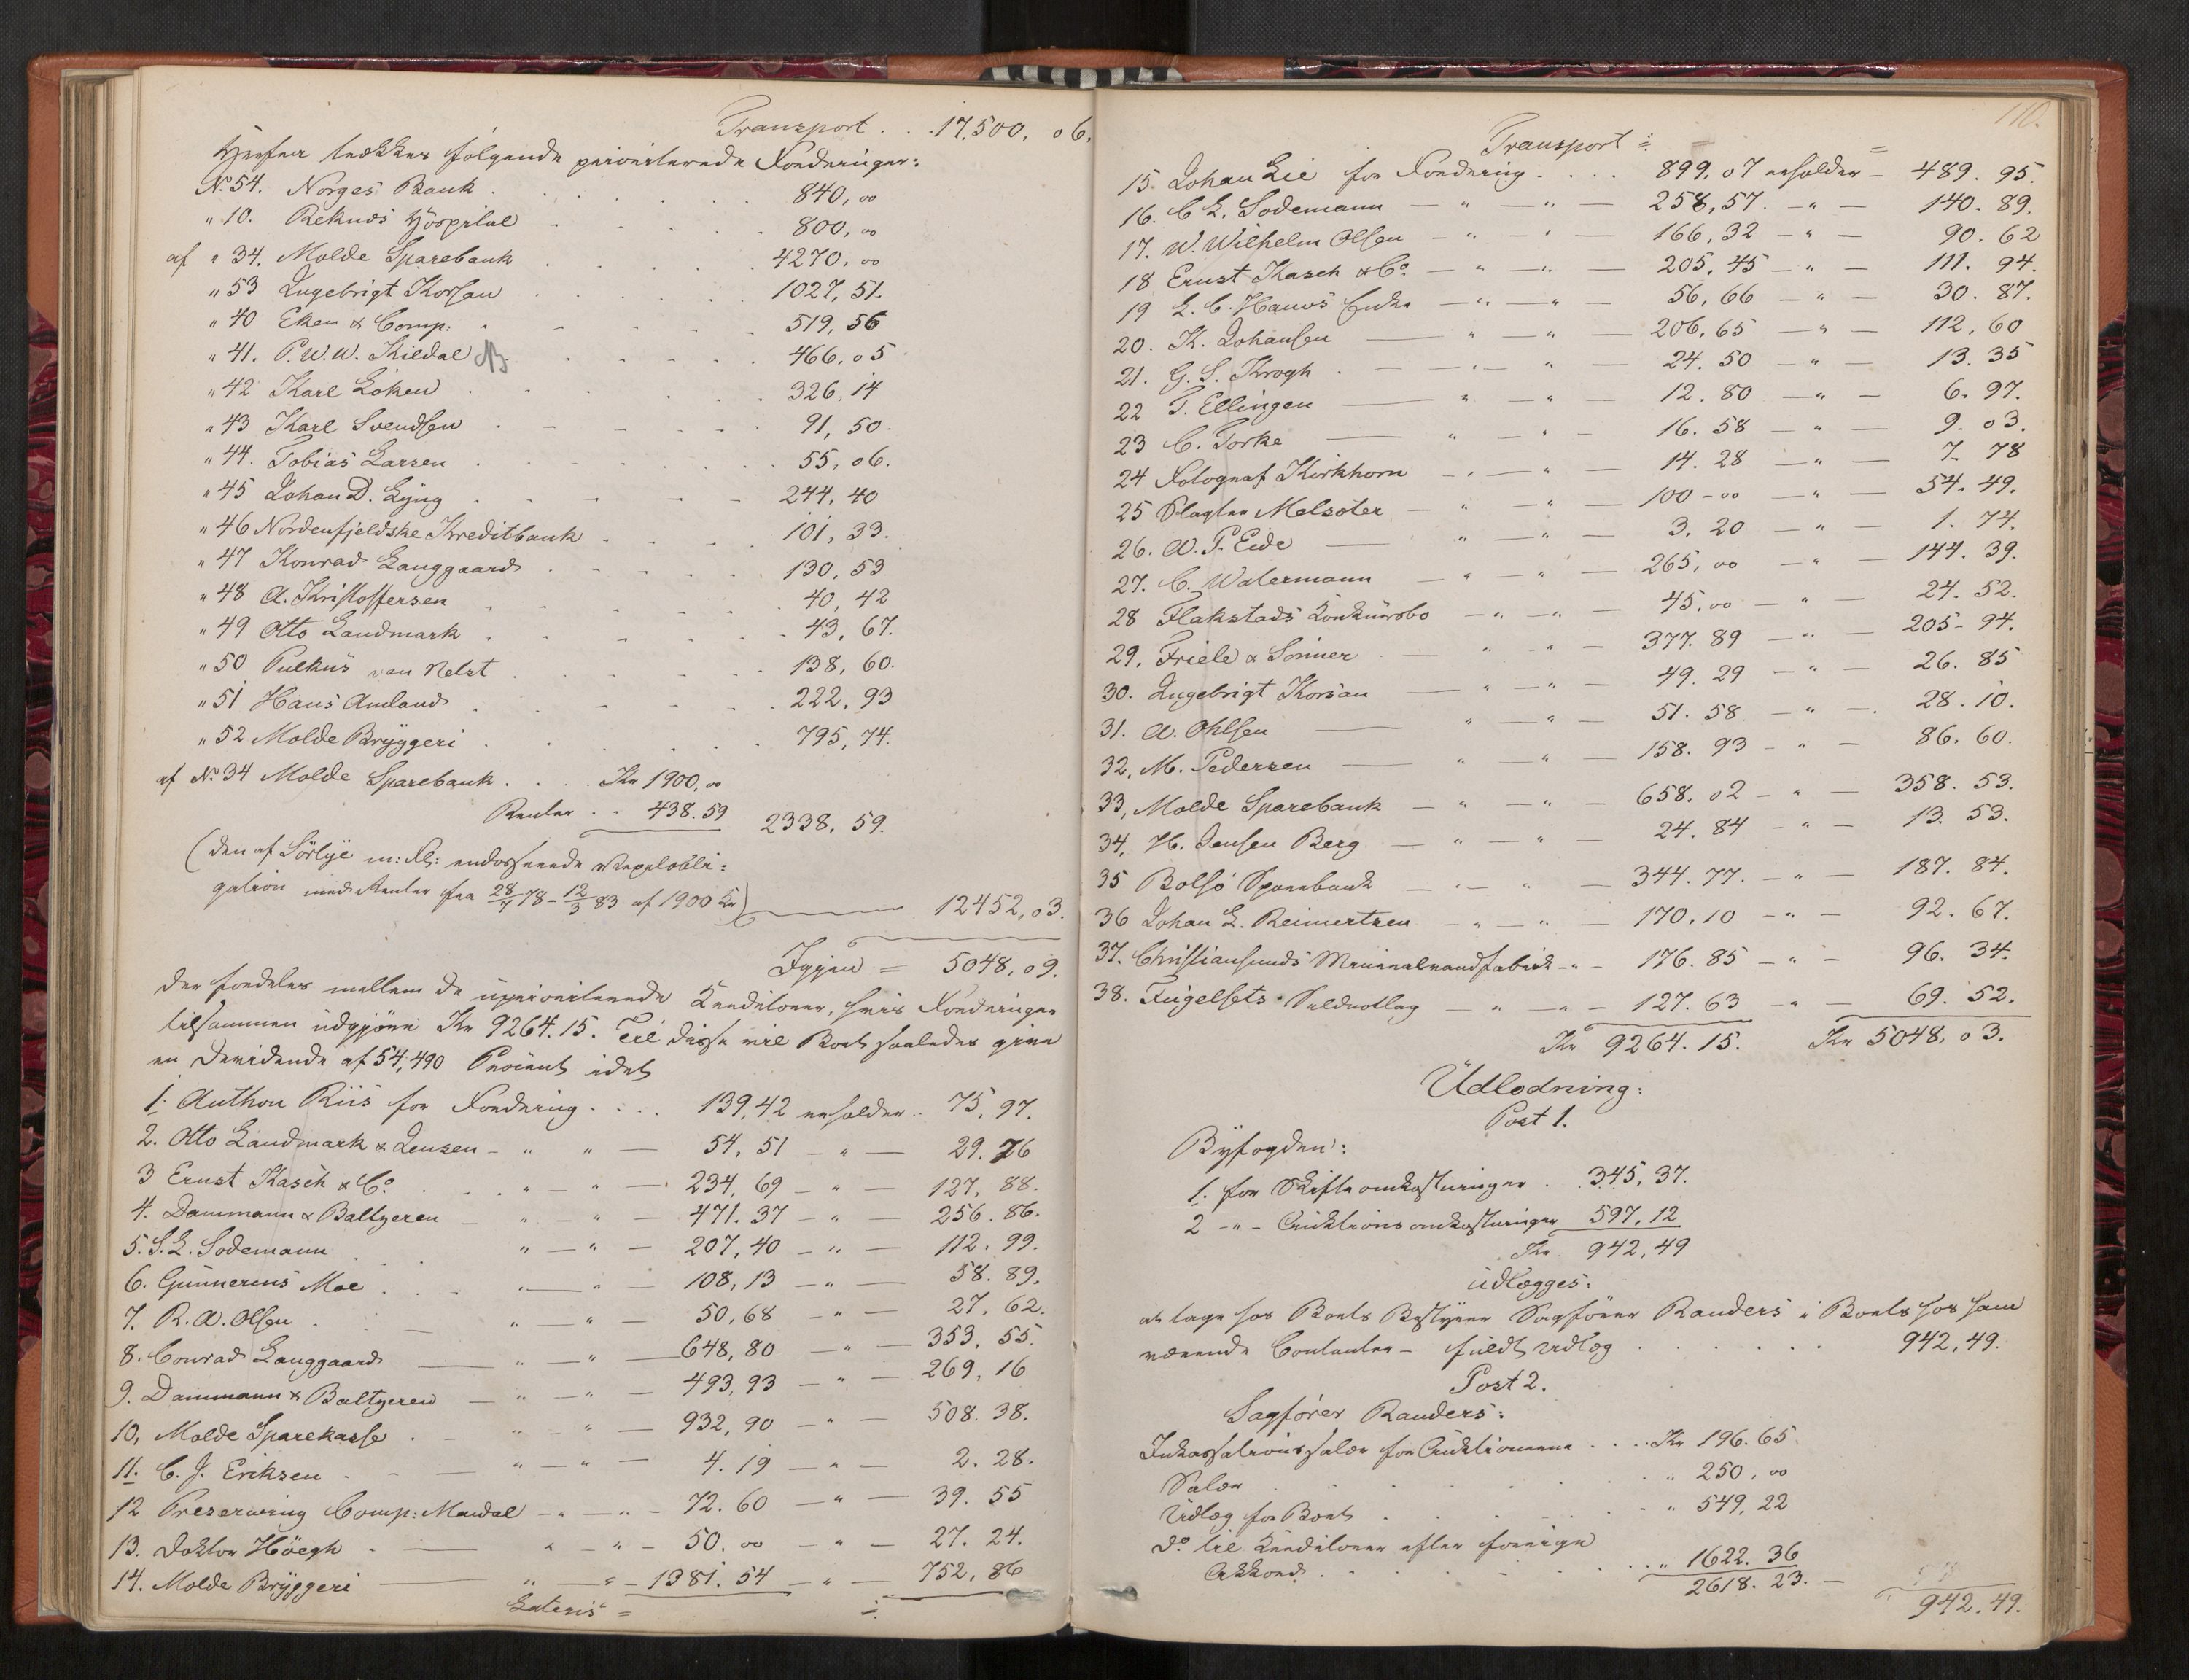 Transport . . . 17,500, 06.
Herfra trækkes følgende prioriterede Fordringer:
No 54. Norges Bank . . . 840, 00
" 10. Reknæs Hospital . . . 800, 00
af " 34. Molde Sparebank . . . 4270, 00
" 53 Ingebrigt Korsan . . . 1027, 51.
" 40 Eken & Comp: . . . 519, 56
" 41. P. W. W. Kildal . . . 466, 05
" 42 Karl Löken . . . 326, 14
" 43 Karl Svendsen . . . 91, 50.
" 44. Tobias Larsen . . . 55, 06.
" 45 Johan D. Lyng . . . 244, 40
" 46 Nordenfjeldske Kreditbank . . . 101, 33.
" 47 Konrad Langgaard . . . 130, 53
" 48 A. Kristoffersen . . . 40, 42
" 49 Otto Landmark . . . 43, 67.
" 50 van Nelst . . . 138, 60.
" 51 Hans Amland . . . 222, 93
" 52 Molde Bryggeri . . . 795, 74.
af No 34 Molde Sparebank . . . Kr 1900, 00
Renter . . 438. 59 2338, 59.
(den af Sörlye m: Fl: endosserede Vexelobli-
gation med Renter fra 28/7 78 - 12/3 83 af 1900 Kr) 12452, 03.
Igjen = 5048, 09.
der fordeles mellem de uprioriterede Kreditorer, hvis Fordringer
tilsammen udgjøre Kr 9264. 15. Til disse vil Boet saaledes give
en Dividende af 54,490 Procent idet
1. Anthon Riis for Fordring . . . . 139, 42 erholder . . 75, 97.
2. Otto Landmark & Jensen - " " — 54, 51 - " — 29. 76
3 Ernst Kasch & Co . . . " - " — 234, 69 - " — 127, 88.
4. Dammann & Baltzersen — " - " — 471. 37 - " — 256. 86.
5. S. L. Sodemann . " — " — 207, 40 - " — 112. 99.
6. Gunnerius Moe . . . " — " — 108, 13 - " — 58. 89.
7. R. A. Olsen . — " — " — 50, 68 - " — 27, 62.
8. Conrad Langgaard — " — " — 648, 80 - " — 353, 55.
9. Dammann & Baltzersen — " — " — 493, 93 - " — 269, 16
10, Molde Sparekasse . — " - " — 932, 90 - " — 508. 38.
11. C. J. Eriksen . - — " — " — 4. 19 — " — 2. 28.
12 Preserving Comp: Mandal - " — " - 72. 60 — " — 39. 55
13. Doktor Höegh . — " - " - 50. 00 - " — 27. 24.
14. Molde Bryggeri — " — " - 1381. 54 — " — 752, 86
Lateris = ÷
110.
Transport ÷ =
15. Johan Lie for Fordring . . . . 899, 07 erholder - 489. 95.
16. C L. Sodemann — " — " — 258, 57. - " — 140. 89.
17. W. Wilhelm Olsen - " - " — 166, 32 - " — 90. 62
18 Ernst Kasch & Co. — " — " — 205, 45 - " — 111. 94.
19 L. C. Hanøs Enke — " — " — 56, 66 — " — 30. 87.
20. K. Johansen — " — " — 206, 65 — " — 112, 60
21. G. S. Krogh . — — " — " — 24. 50 — " — 13. 35
22 T. Ellingen — " — " — 12. 80 — " — 6. 97.
23 C. Torke — " — " — 16. 58 — " — 9. 03.
24 Fotograf Kirkhorn - " — " — 14. 28 — " — 7. 78
25 Slagter Melsæter — " — " — 100 - 00 — " — 54. 49.
26. A. P. Eide — " — " — 3. 20 — " — 1. 74.
27. C. Watermann — " — " — 265, 00 — " — 144. 39.
28 Flakstads Konkursbo — " — " — 45. 00 — " — 24. 52.
29, Friele & Sönner . — " " — 377. 89 — " — 205 - 94.
30. Ingebrigt Korsan — " — " — 49. 29 — " — 26. 85
31. A. Ohlsen — " — " — 51. 58 — " — 28. 10.
32, M. Pedersen — " — " — 158. 93 — " — 86. 60.
33, Molde Sparebank — " — " — 658. 02 - " — 358. 53.
34, H. Jensen Berg — " — " — 24. 84 - " — 13. 53.
35 Bolsö Sparebank — " — " — 344. 77. - " — 187. 84.
36 Johan L. Reimertsen — " — " — 170. 10 - " — 92. 67.
37. Christiansunds Mineralvandfabrik - " - 176. 85 — " — 96. 34.
38. Fugelsets — " — " — 127. 63 — " — 69. 52.
Kr 9264. 15. Kr 5048, 03.
Udlodning:
Post 1.
Byfogden:
1. for Skifteomkostninger . . 345, 37.
2 - " - Auktionsomkostninger 597, 12
Kr. 942, 49
udlægges:
at tage hos Boets Bestyrer Sagförer Randers i Boets hos ham
værende Contanter - fuldt Udlæg . . . . . . 942, 49.
Post 2.
Sagförer Randers:
Inkassationssalær for Auktionerne . . . . Kr 196. 65.
Salær . . . " 250, 00
Udlæg for Boet . . . " 549, 22
Do til Kreditorer efter forrige
Akkord . . . " 1622. 36
2618. 23. —
942. 49.